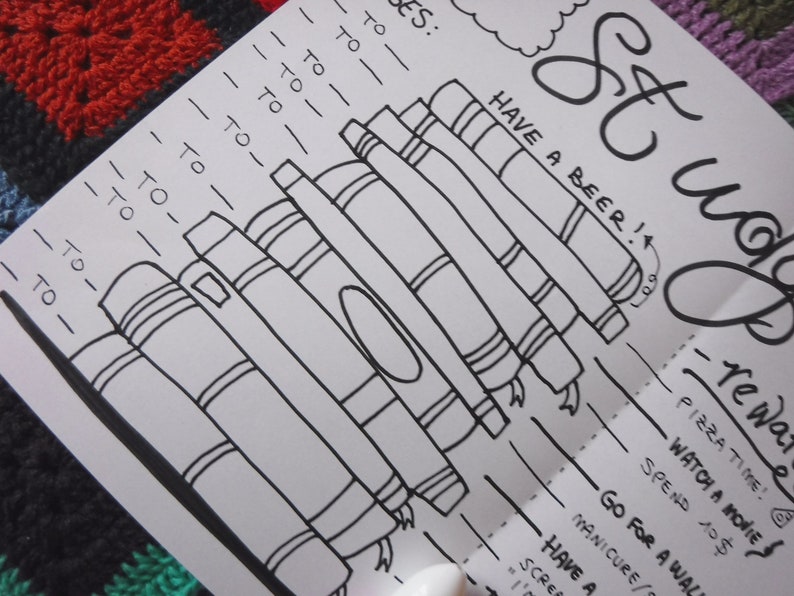 Study
SES:
— TO —
— TO —
— TO —
— TO —
— TO —
— TO —
— TO —
— TO —
— TO —
— TO —
— TO —
HAVE A BEER!
- rewar
PIZZA TIME!
WATCH A MOVIE
SPEND 10$
GO FOR A WAL
MANICURE/
HAVE A
SCRE
"I'